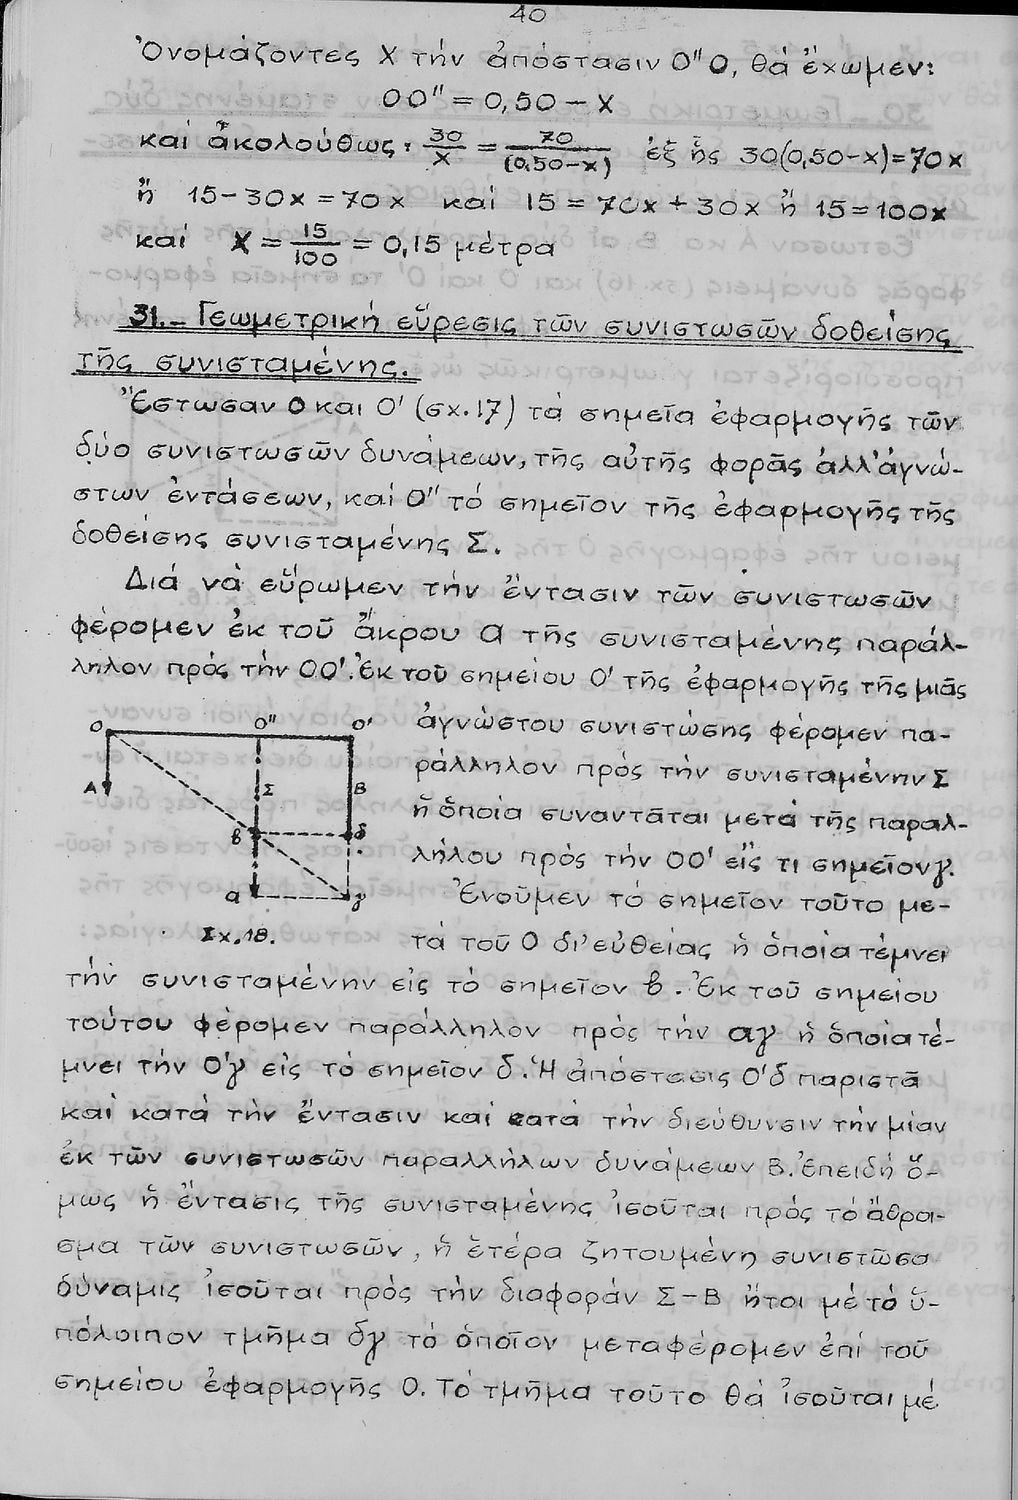 40
Ὀνομάζοντες Χ τήν ἀπόστασιν Ο"Ο, θά ἔχωμεν:
ΟΟ" = 0,50 - Χ
καί ἀκολούθως: 30/Χ = 70/(0,50-x) ἐξ ἧς 30(0,50-x)=70x
ἤ 15-30x=70x καί 15=70x+30x ἤ 15=100x
καί X = 15/100 = 0,15 μέτρα
31.- Γεωμετρική εὕρεσις τῶν συνιστωσῶν δοθείσης
τῆς συνισταμένης.
Ἔστωσαν Ο και Ο' (σχ.17) τά σημεῖα ἐφαρμογῆς τῶν
δύο συνιστωσῶν δυνάμεων, τῆς αὐτῆς φορᾶς ἀλλ'ἀγνώ-
στων ἐντάσεων, καί Ο" τό σημεῖον τῆς ἐφαρμογῆς τῆς
δοθείσης συνισταμένης Σ.
Διά νά εὕρωμεν τήν ἔντασιν τῶν συνιστωσῶν
φέρομεν ἐκ τοῦ ἄκρου α τῆς συνισταμένης παράλ-
ληλον πρός τήν ΟΟ'. Ἐκ τοῦ σημείου Ο' τῆς ἐφαρμογῆς τῆς μιᾶς
ἀγνώστου συνιστώσης φέρομεν πα-
ράλληλον πρός τήν συνισταμένην Σ
ἥ ὁποία συναντᾶται μετά τῆς παραλ-
λήλου πρός τήν ΟΟ' εἴς τι σημεῖον γ.
Ἑνοῦμεν τό σημεῖον τοῦτο με-
Ο Ο" Ο'
Α Σ Β
β δ
α γ
Σχ.18.
τά τοῦ Ο δι'εὐθείας ἡ ὁποία τέμνει
τήν συνισταμένην εἰς τό σημεῖον β. Ἐκ τοῦ σημείου
τούτου φέρομεν παράλληλον πρός τήν αγ ἡ ὁποία τέ-
μνει τήν Ο'γ εἰς τό σημεῖον δ. Ἡ ἀπόστασις Ο'δ παριστᾶ
καί κατά τήν ἔντασιν καί κατά τήν διεύθυνσιν τήν μίαν
ἐκ τῶν συνιστωσῶν παραλλήλων δυνάμεων Β. Ἐπειδή ὅ-
μως ἡ ἔντασις τῆς συνισταμένης ἰσοῦται πρός τό ἄθροι-
σμα τῶν συνιστωσῶν, ἡ ἑτέρα ζητουμένη συνιστῶσα
δύναμις ἰσοῦται πρός τήν διαφοράν Σ-Β ἤτοι μέ τό ὑ-
πόλοιπον τμῆμα δγ τό ὁποῖον μεταφέρομεν ἐπί τοῦ
σημείου ἐφαρμογῆς Ο. Τό τμῆμα τοῦτο θά ἰσοῦται μέ